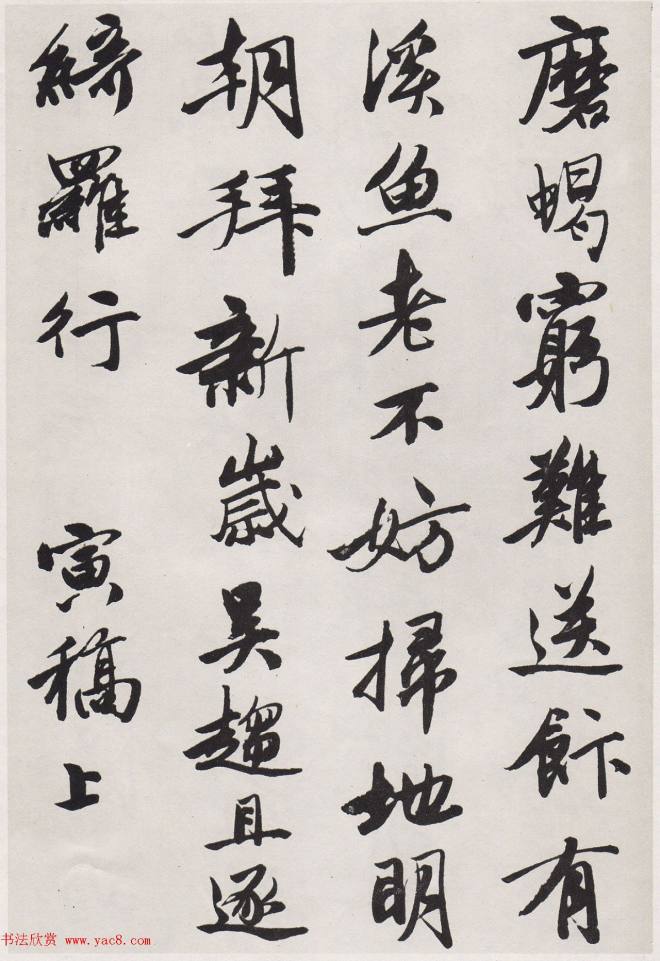 磨蝎窮難送飰有
溪魚老不妨掃地明
朝拜新歲吴趨且逐
綺羅行 寅稿上
书法欣赏 www.yac8.com